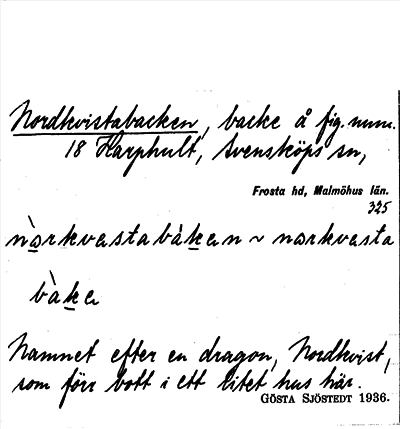 Nordkvistabacken, backe å fig. num.
18 Harphult, Svensköps sn,
Frosta hd, Malmöhus län.
325
nòrkvestabàken ~ norkvesta
bàke
Namnet efter en dragon, Nordkvist,
som förr bott i ett litet hus här.
GÖSTA SJÖSTEDT 1936.